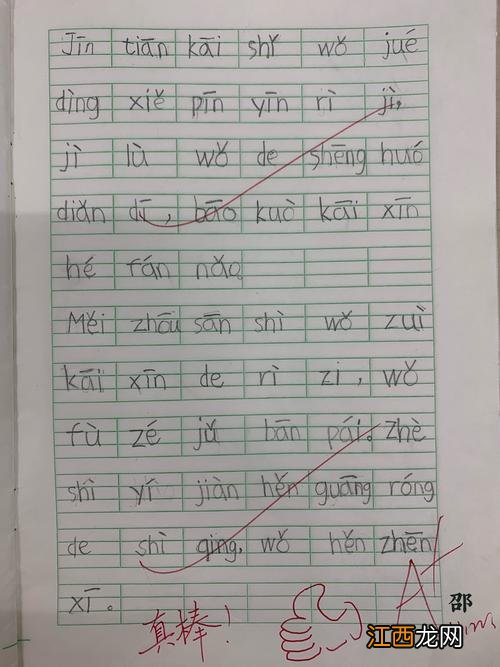 Jīn tiān kāi shǐ wǒ jué
dìng xiě pīn yīn rì jì,
jì lù wǒ de shēng huó
diǎn dī, bāo kuò kāi xīn
hé fán nǎo。
Měi zhōu sān shì wǒ zuì
kāi xīn de rì zi, wǒ
fù zé jǔ bān pái。zhè
shì yí jiàn hěn guāng róng
de shì qing, wǒ hěn zhēn
xī。
真棒!
A+
邵
江西龙网